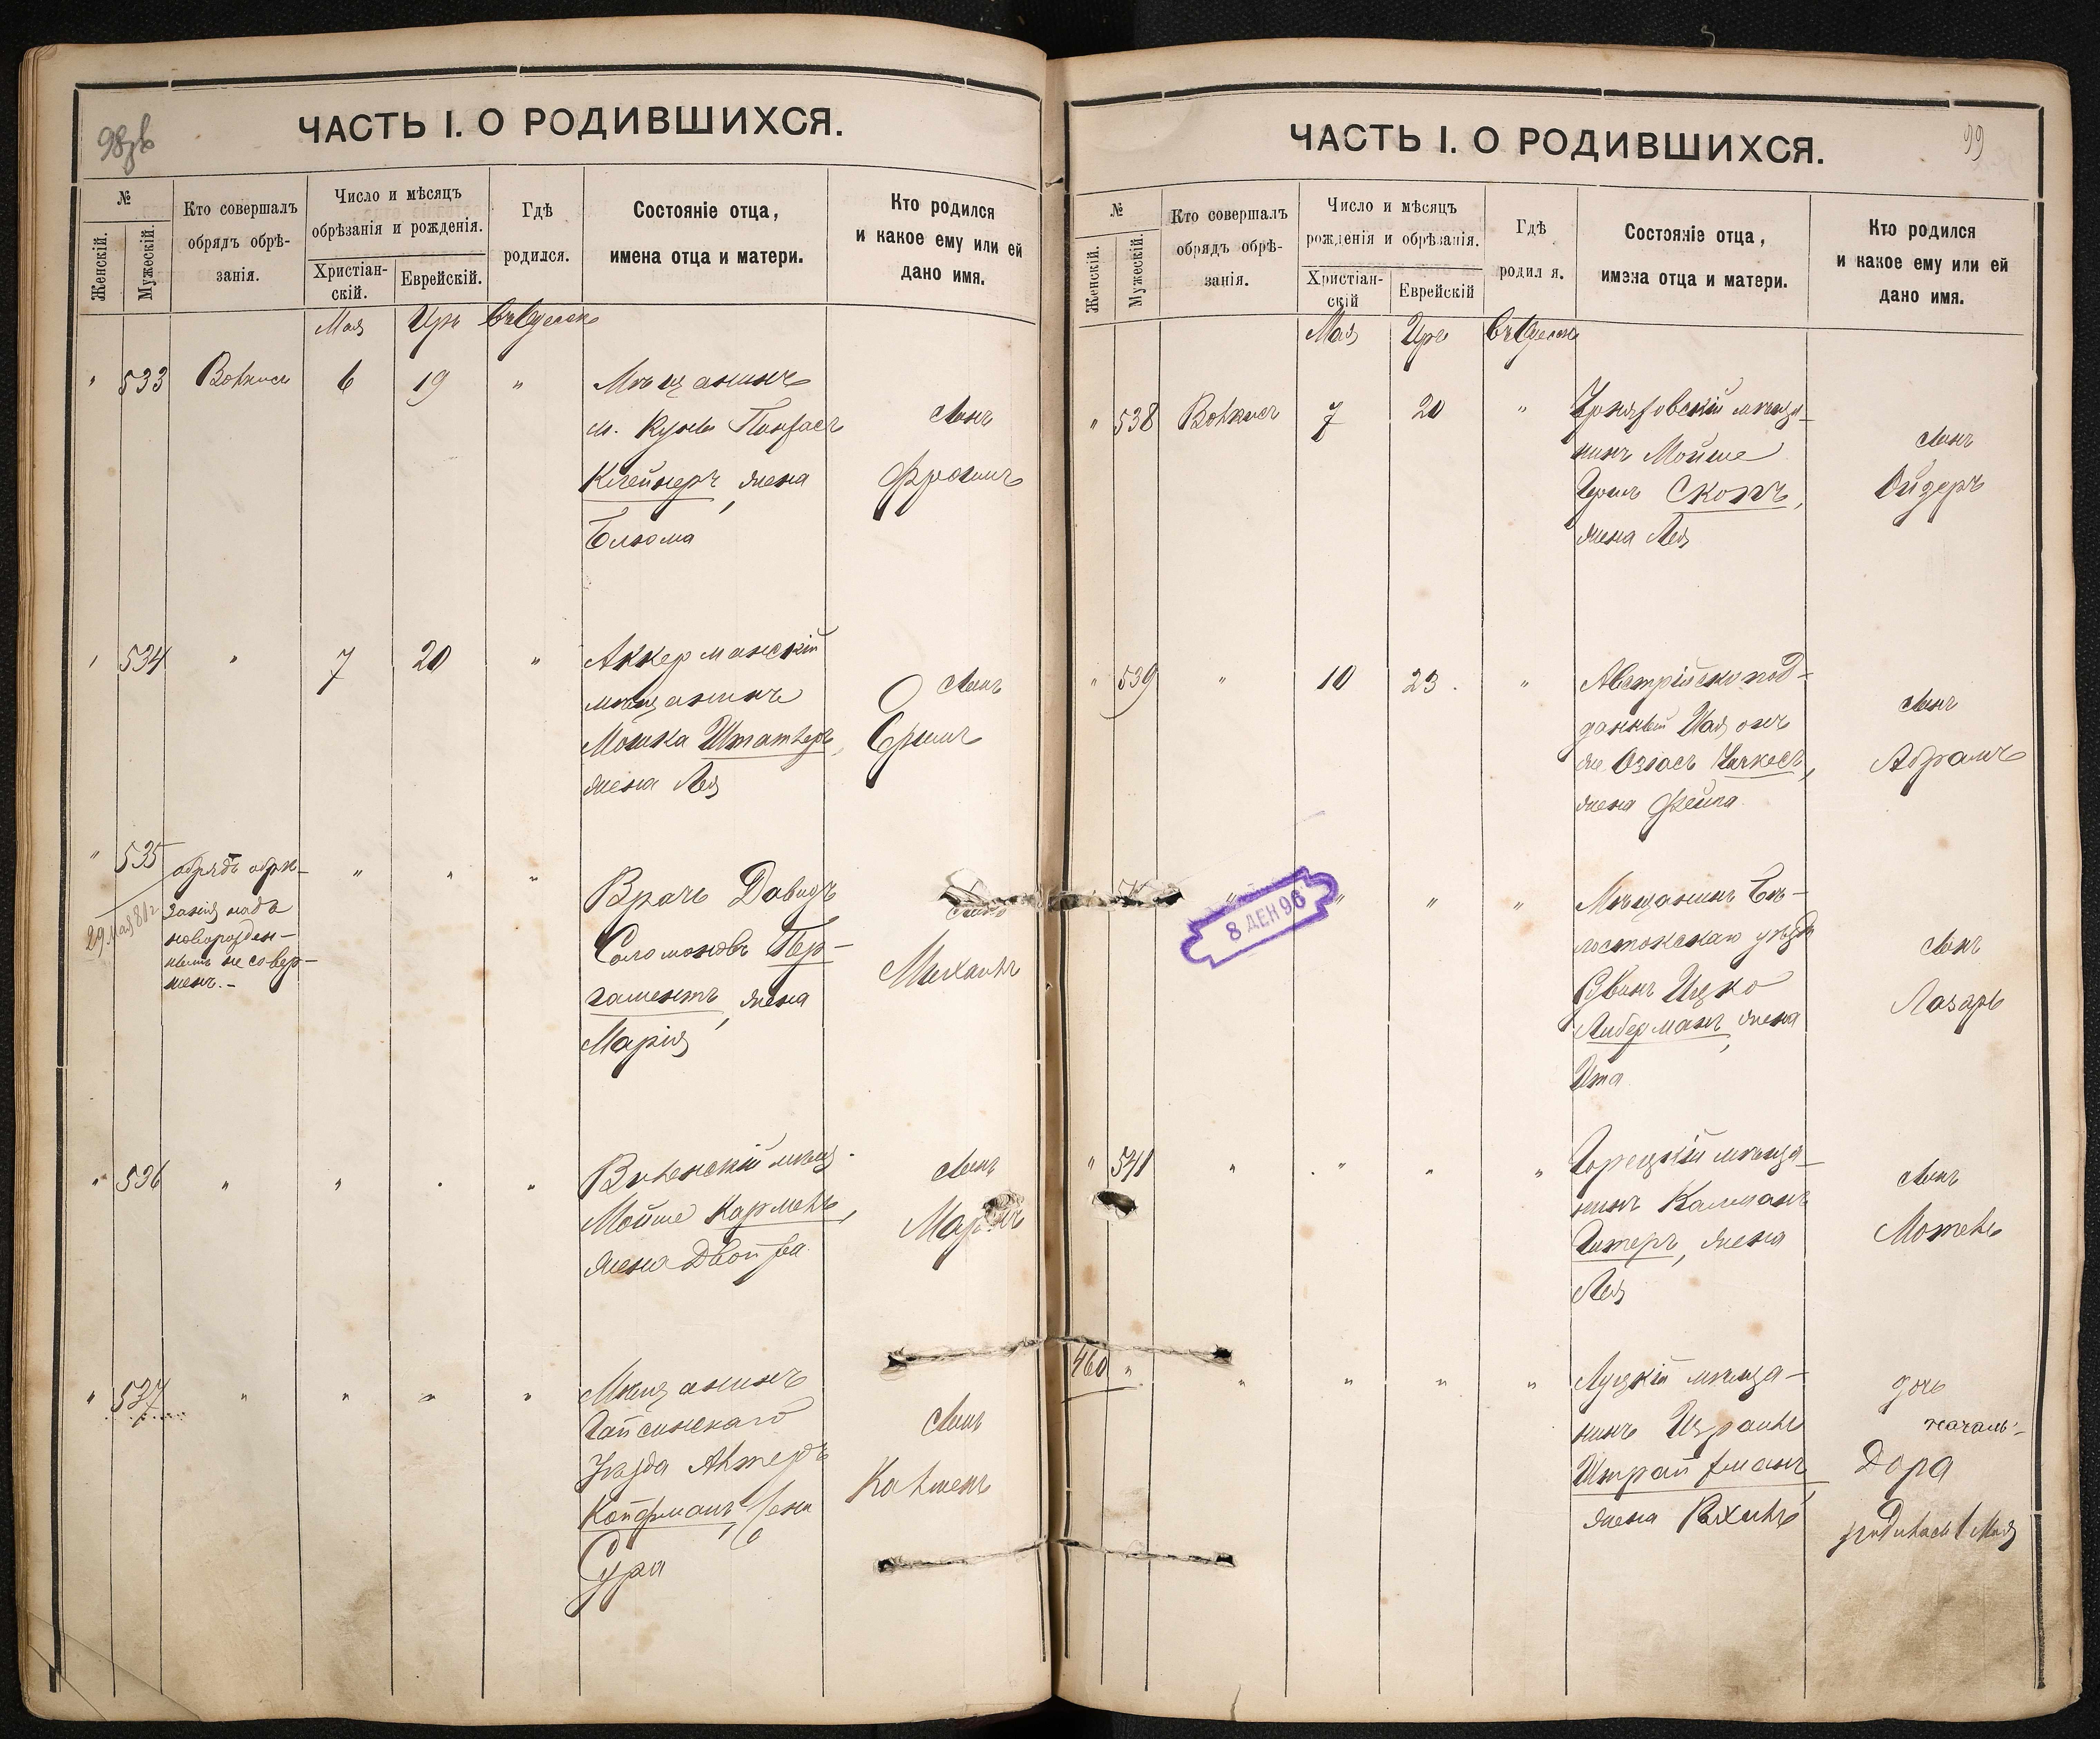 98об
ЧАСТЬ I. О РОДИВШИХСЯ.
№
Женскій.
Мужескій.
Кто совершалъ
обрядъ обрѣ-
занія.
Число и мѣсяцъ
обрѣзанія и рожденія.
Христіан-
скій.
Еврейскій.
Гдѣ
родился.
Состояніе отца,
имена отца и матери.
Кто родился
и какое ему или ей
дано имя.
Мая Иръ въ Одессѣ
" 533 6 19 "
Мѣщанинъ
м. Купель Пинхасъ
Клейнеръ, жена
Блюма
Сынъ
Фроимъ
" 534 " 7 20 "
Аккерманскій
мѣщанинъ
Мошка Штатлеръ,
жена Лея
Сынъ
Ершъ
" 535
29 мая 81г.
обрядъ обрѣ-
занія надъ
новорожден-
нымъ не совер-
шенъ.-
" " "
Врачъ Давидъ
Соломоновъ Пер-
гаментъ, жена
Марія
Сынъ
Михаилъ
" 536 " " " "
Виленскій мѣщ.
Мойше Кармель,
жена Двойра
Сынъ
" 537 " " " "
Мѣщанинъ
Гайсинскаго
Уѣзда Альтеръ
Койфманъ, жена
Сура
Сынъ
Кальменъ
99
ЧАСТЬ I. О РОДИВШИХСЯ.
№
Женскій.
Мужескій.
Кто совершалъ
обрядъ обрѣ-
занія.
Число и мѣсяцъ
рожденія и обрѣзанія.
Христіан-
скій
Еврейскій
Гдѣ
родил я.
Состояніе отца,
имена отца и матери.
Кто родился
и какое ему или ей
дано имя.
Мая Иръ въ Одессѣ
" 538 7 20 "
мѣща-
нинъ Мойше
жена Лея
сынъ
" 539 " 10 23. "
Австрійско под-
данный
жена Фейга
сынъ
Абрамъ
8 ДЕН 96
" " " "
Мѣщанинъ Бѣ-
лостокскаго уѣзда
Рувинъ Ицко
Либерманъ, жена
Ита
сынъ
Лазарь
" 541 " " " "
Горецкій мѣща-
нинъ Калманъ
Гитеръ, жена
Лея
сынъ
Мотель
460 " " " " "
Луцкій мѣща-
нинъ Израиль
Штрайхманъ,
жена Рахиль
дочь
Дора
родилась 1 Мая